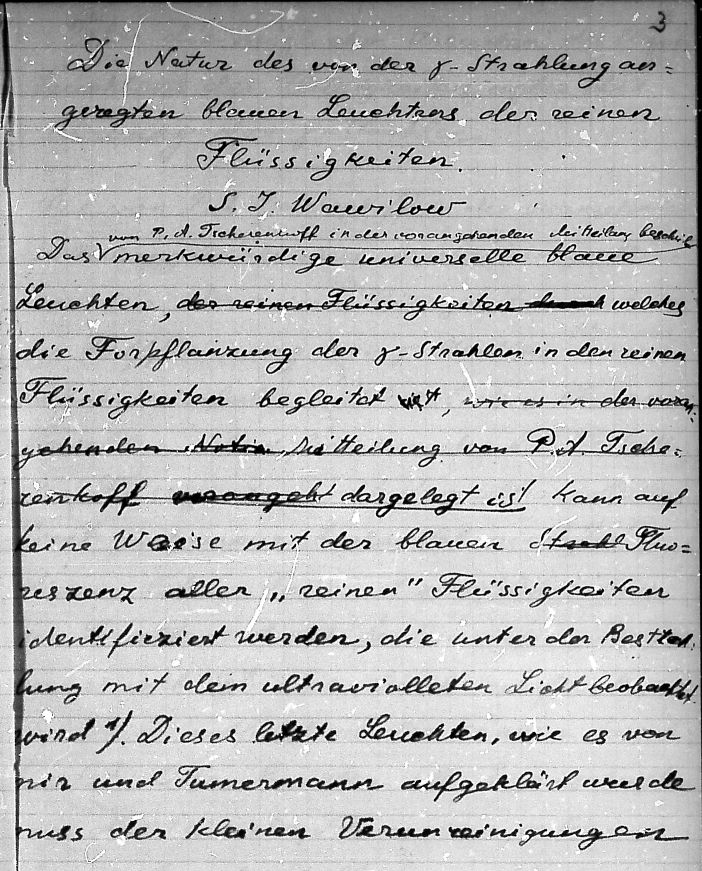 3
Die Natur des von der γ-Strahlung an=
geregten blauen Leuchtens der reinen
Flüssigkeiten.
S. J. Wawilow
von P. A. Tscherenkoff in der vorangehenden Mitteilung beschrieb
Das merkwürdige universelle blaue
Leuchten, der reinen Flüssigkeiten durch welches
die Forpflanzung der γ-Strahlen in den reinen
Flüssigkeiten begleitet ist, wie es in der voran=
gehenden Notiz Mitteilung von P. A. Tsche=
renkoff vorangeht dargelegt ist kann auf
keine Weise mit der blauen Strahl Fluo=
reszenz aller „reinen" Flüssigkeiten
identifiziert werden, die unter der Bestrah=
lung mit dem ultraviolleten Licht beobachtet
wird 1). Dieses letzte Leuchten, wie es von
mir und Tumermann aufgeklärt wurde
muss der kleinen Verunreinigungen